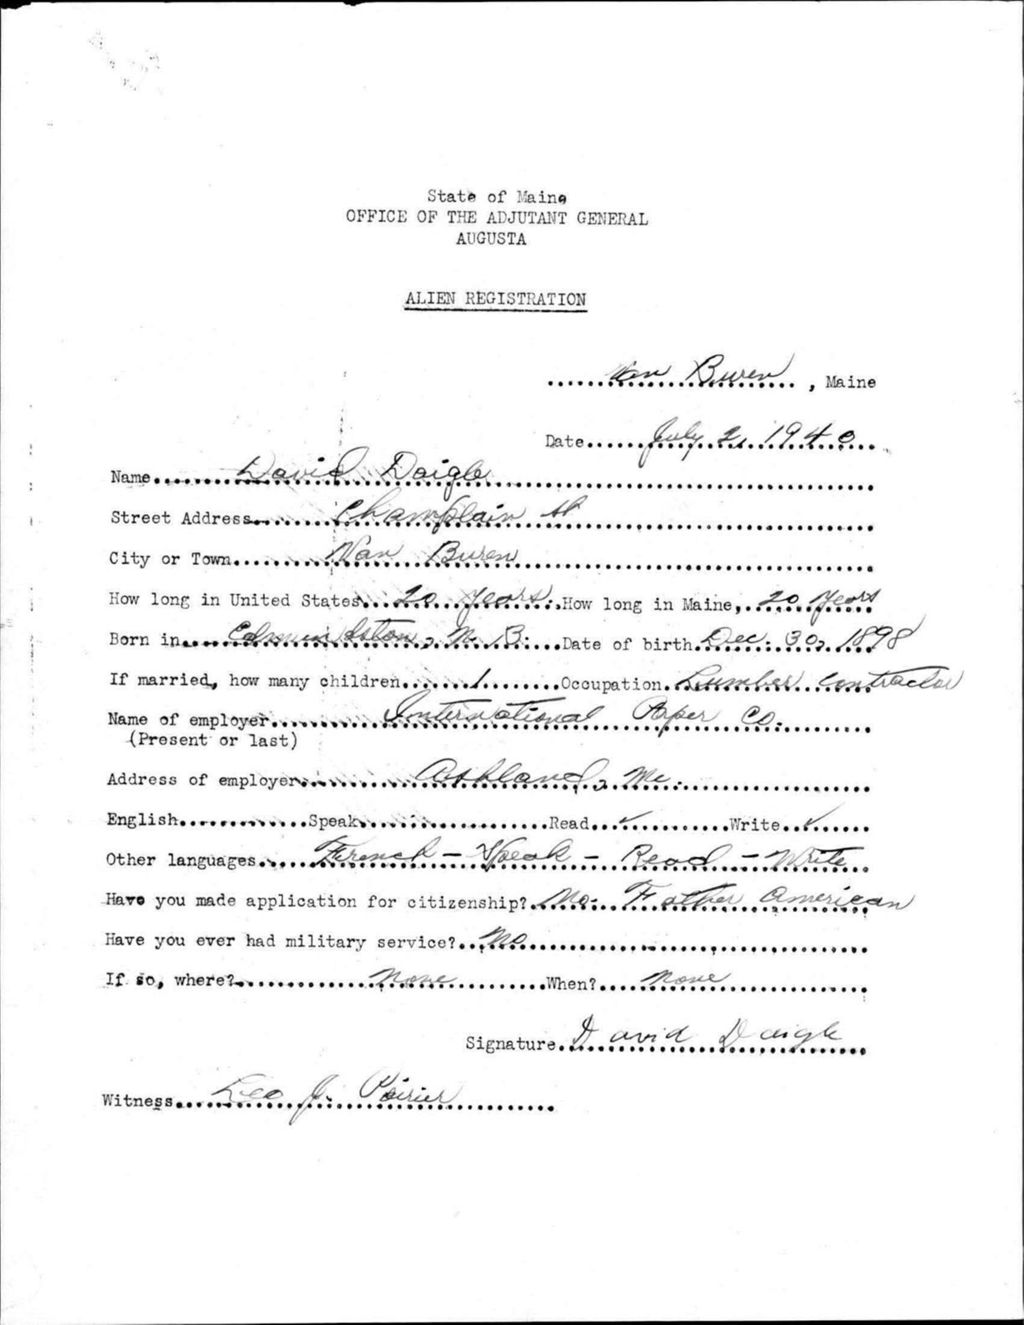 State of Maine
OFFICE OF THE ADJUTANT GENERAL
AUGUSTA
ALIEN REGISTRATION
Van Buren, Maine
Date July 2, 1940
Name David Daigle
Street Address Champlain St
City or Town Van Buren
How long in United States 20 Years How long in Maine, 20 Years
Born in Edmundston, N.B. Date of birth Dec. 30, 1898
If married, how many children 1 Occupation Lumber Contractor
Name of employer International Paper Co.
(Present or last)
Address of employer Ashland, Me.
English Speak Read ✓ Write ✓
Other languages French - Speak - Read - Write
Have you made application for citizenship? No. Father American
Have you ever had military service? No
If so, where? None When? None
Signature David Daigle
Witness Leo J. Poirier